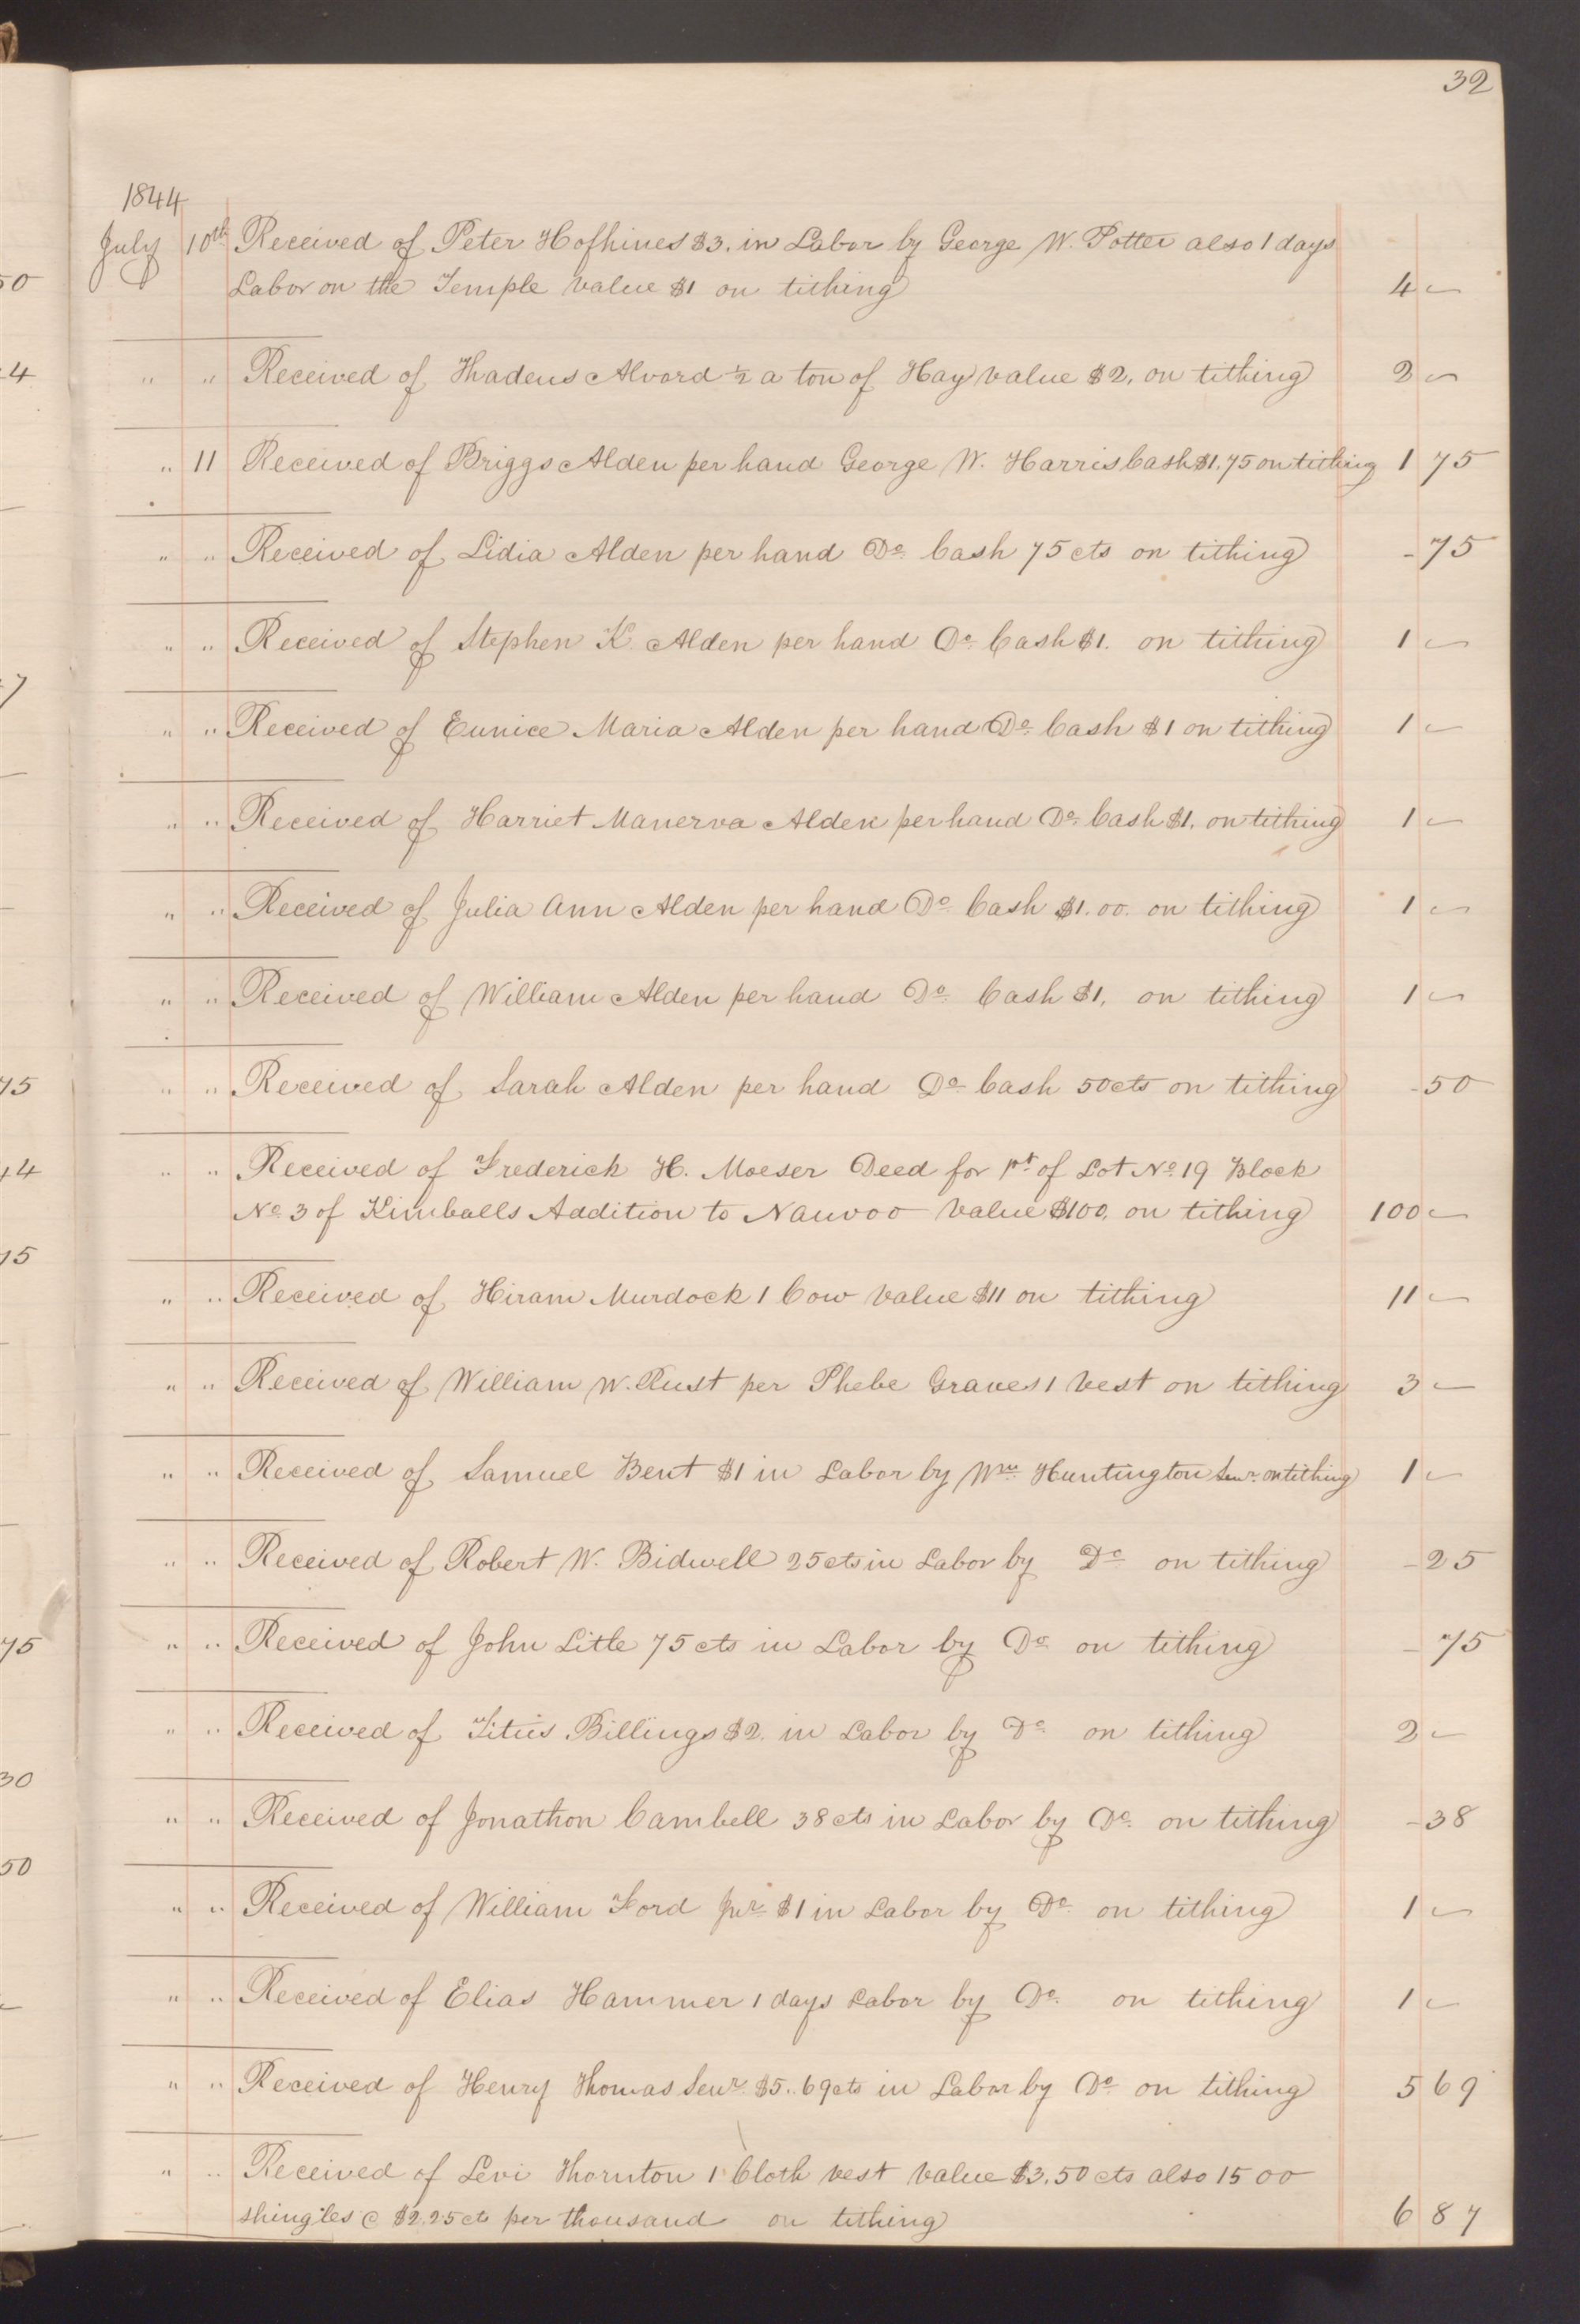 32
1844
July 10th Received of Peter Hofhines $3. in Labor by George W. Potter also 1 days
50 Labor on the Temple value $1 on tithing 4 —
4 " " Received of Thadeus Alvord ½ a ton of Hay value $2. on tithing 2 —
" 11 Received of Briggs Alden per hand George W. Harris Cash $1.75 on tithing 1 75
" " Received of Lidia Alden per hand Do. Cash 75 cts on tithing - 75
" " Received of Stephen K. Alden per hand Do. Cash $1. on tithing 1 —
7 " " Received of Eunice Maria Alden per hand Do. Cash $1 on tithing 1 —
" " Received of Harriet Manerva Alden per hand Do. Cash $1. on tithing 1 —
" " Received of Julia Ann Alden per hand Do. Cash $1.00. on tithing 1 —
" " Received of William Alden per hand Do. Cash $1, on tithing 1 —
75 " " Received of Sarah Alden per hand Do. Cash 50 cts on tithing - 50
44 " " Received of Frederick H. Moeser Deed for pt. of Lot No. 19 Block
No. 3 of Kimballs Addition to Nauvoo value $100. on tithing 100 —
75
" " Received of Hiram Murdock 1 Cow value $11 on tithing 11 —
" " Received of William W. Rust per Phebe Graves 1 vest on tithing 3 —
" " Received of Samuel Bent $1 in Labor by Wm. Huntington Senr. on tithing 1 —
" " Received of Robert W. Bidwell 25 cts in Labor by Do. on tithing - 25
75 " " Received of John Litle 75 cts in Labor by Do. on tithing - 75
" " Received of Titus Billings $2. in Labor by Do. on tithing 2 —
30
" " Received of Jonathon Cambell 38 cts in Labor by Do. on tithing - 38
50
" " Received of William Ford Jur. $1 in Labor by Do. on tithing 1 —
" " Received of Elias Hammer 1 days Labor by Do. on tithing 1 —
" " Received of Henry Thomas Senr. $5..69 cts in Labor by Do. on tithing 5 69
" " Received of Levi Thornton 1 Cloth vest value $3.50 cts also 1500
shingles @ $2.25 cts per thousand on tithing 6 87